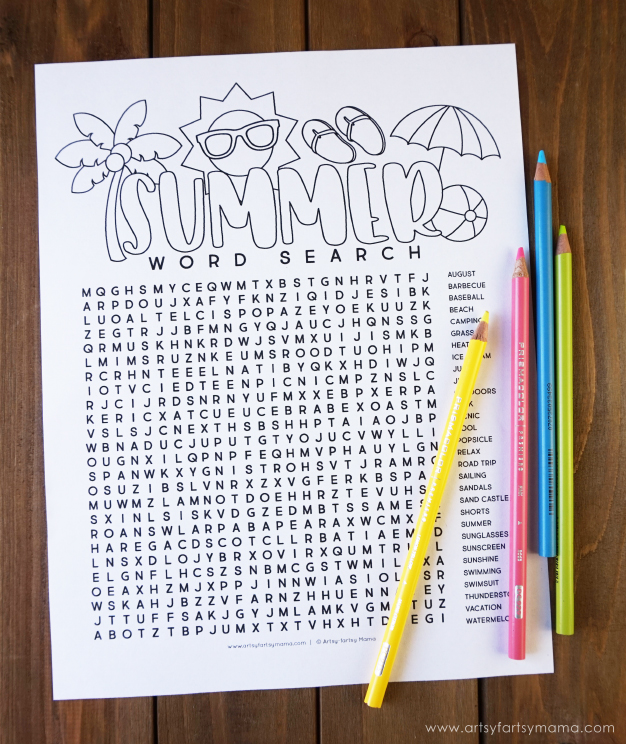 SUMMER
WORD SEARCH
M Q G H S M Y C E Q W M T X B S T G N H R V T F J
A R P D O U J X A F Y F K N Z I Q I D J E S I B K
L U O A L T E L C I S P O P A Z E Y O E K U U Z K
Z E G T R J J B F M N G Y Q J A U C J H Q N S S G
Q R M U S K H N K R D W J S V M X U I J I S M K B
L M I M S R U Z N K E U M S R O O D T U O H I P M
R C R H N T E E E L N A T I B Y Q K X H D I W J Q
I O T V C I E D T E E N P I C N I C M P Z N S L C
R J C I J R D S N R N Y U F M X X E B P X E R P A
K E R I C X A T C U E U C E B R A B E X O A S T M
V S L S J C N E X T H S B S H H P T A I A O J B P
W B N A D U C J U P U T G T Y O J U C V W Y L L I
O U G N X I L Q P N P F E Q H M V P H A U Y L G N
S P A N W K X Y G N I S T R O H S V T J R A M R G
O S U Z I B S L V N R X Z X V G F E R K B S P A
M U W M Z L A M N O T D O E H H R Z T E V U H S
S X I N L S I S K V D G Z E D M B T S S A M E S
R O A N S W L A R P A B A P E A R A X W C M X F
H A R E G A C D S C O T C L L R B A T I A E M D
L N S X D L O J Y B R X O V I R X Q U M T R L
E L G N F L H C S Z S N B M C G S T W M I L X A
O E A X H Z M J X P P J I N N W I A S I O L S R
W S K A H J B Z Z V F A R N Z H H U E N N E Y
J T T U F F S A K J G Y J M L A M K V G M T U Z
A B O T Z T B P J U M X T X T V H X H T D E G I
AUGUST
BARBECUE
BASEBALL
BEACH
CAMPING
GRASS
HEAT
ICE
POPSICLE
RELAX
ROAD TRIP
SAILING
SANDALS
SAND CASTLE
SHORTS
SUMMER
SUNGLASSES
SUNSCREEN
SUNSHINE
SWIMMING
SWIMSUIT
VACATION
www.artsyfartsymama.com | © Artsy-Fartsy Mama
PRISMACOLOR PREMIER
www.artsyfartsymama.com